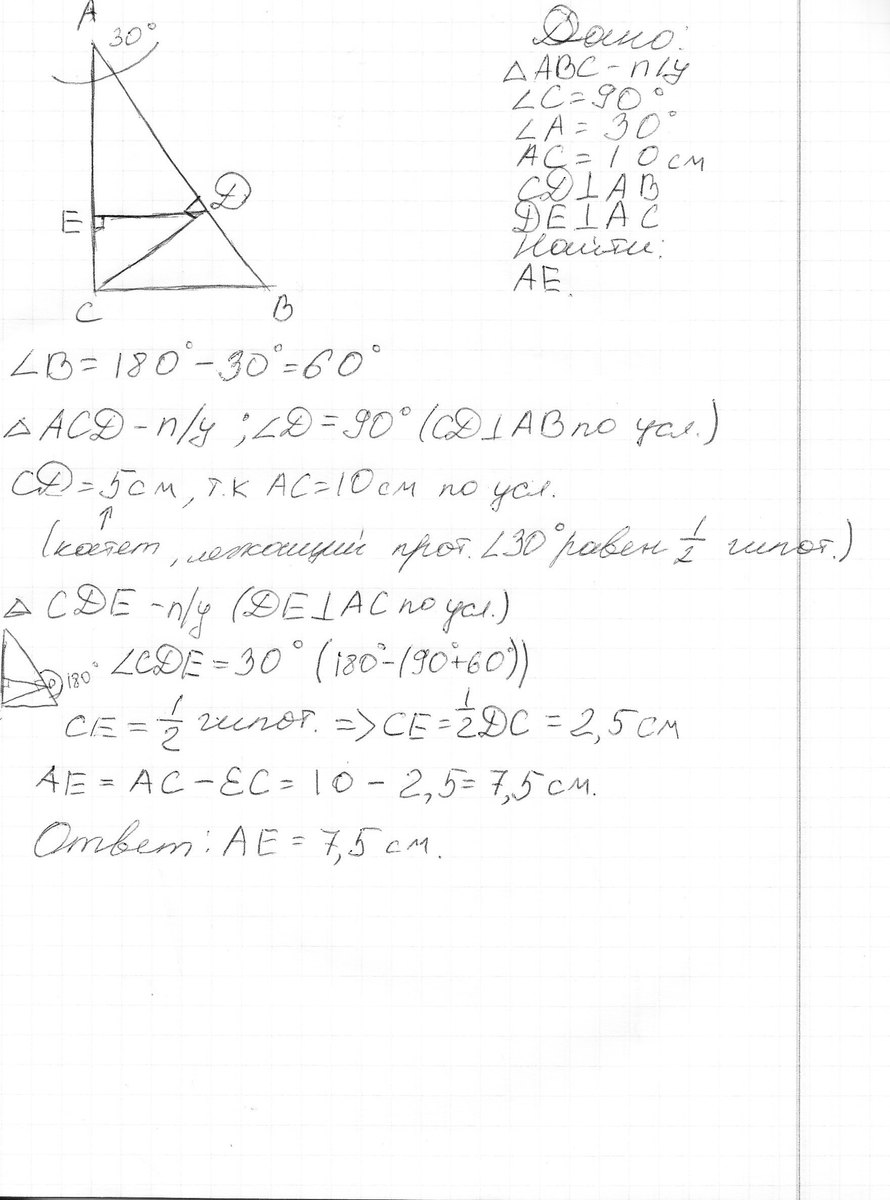 A
30°
D
E
C
B
Дано:
△ABC - п/у
∠C = 90°
∠A = 30°
AC = 10 см
CD⊥AB
DE⊥AC
Найти:
AE.
∠B = 180° - 30° = 60°
△ACD - п/у ; ∠D = 90° (CD⊥AB по усл.)
CD = 5 см, т.к AC = 10 см по усл.
↑
(катет, лежащий прот. ∠30° равен 1/2 гипот.)
△ CDE - п/у (DE⊥AC по усл.)
D 180° ∠CDE = 30° (180° - (90° + 60°))
CE = 1/2 гипот. => CE = 1/2 DC = 2,5 см
AE = AC - EC = 10 - 2,5 = 7,5 см.
Ответ: AE = 7,5 см.